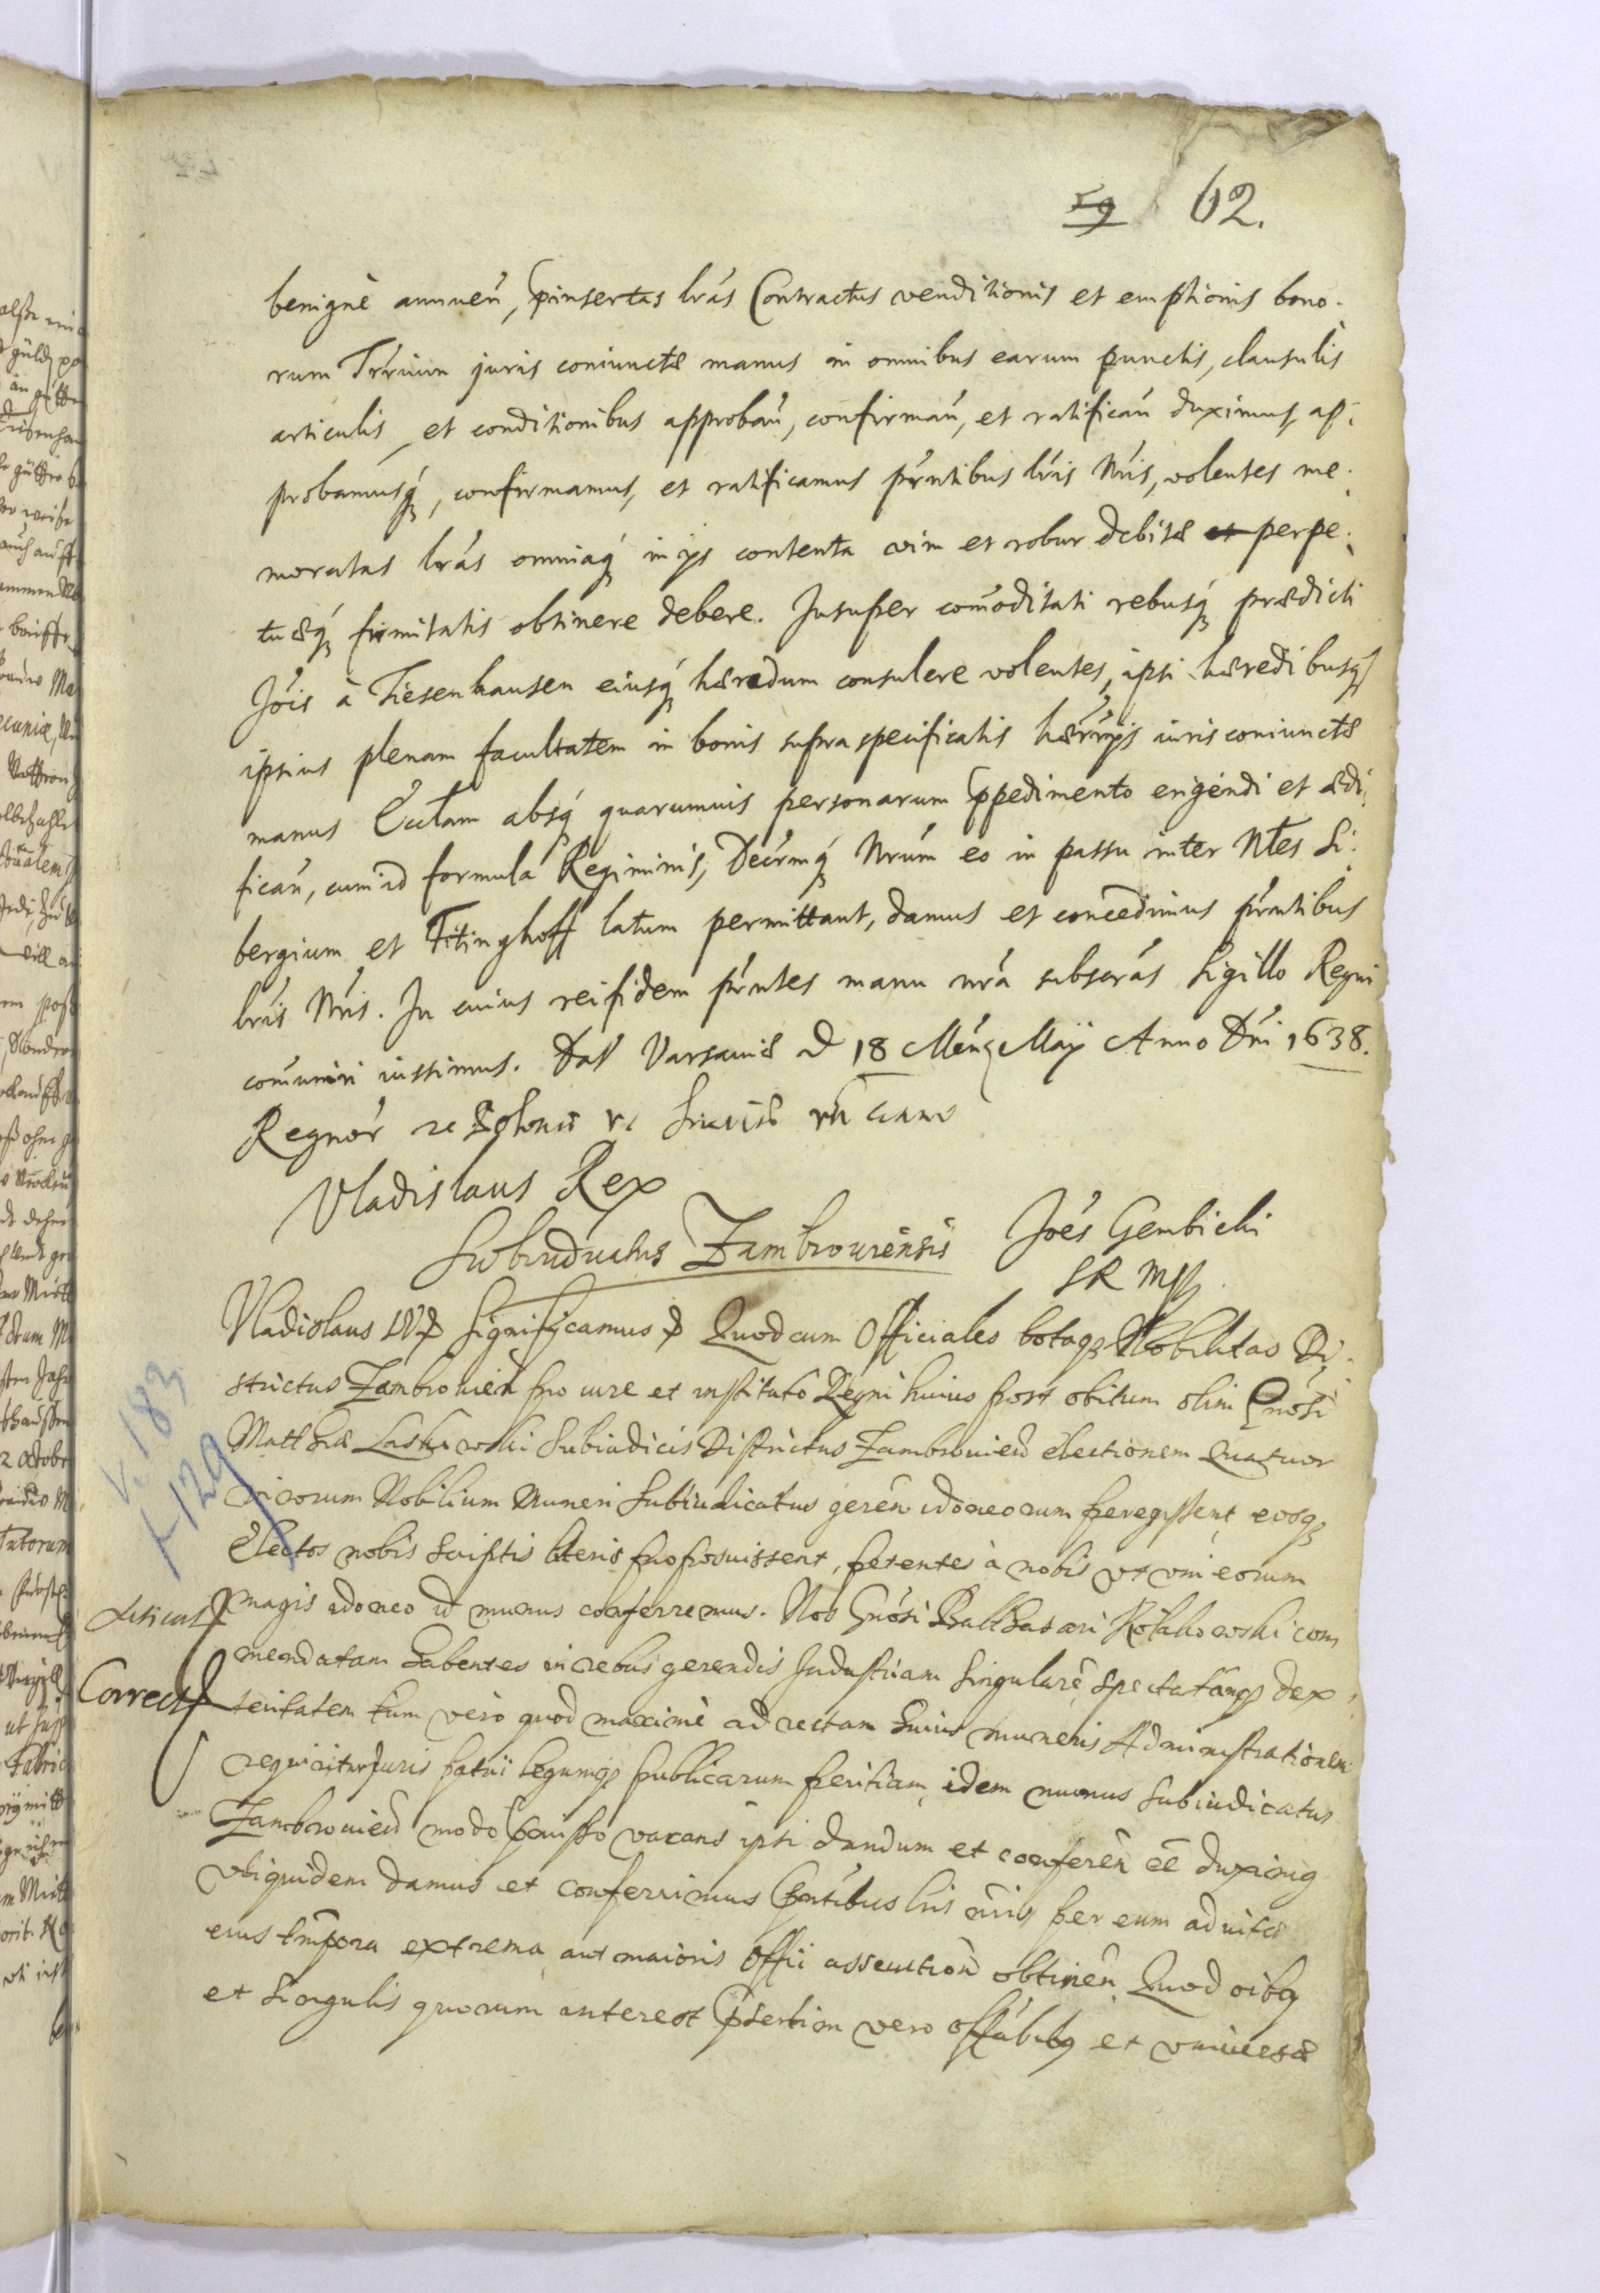 59 62.
benignè annueń, p̃insertas lrás Contractus venditionis et emptionis bono.
rum Trŕium juris coniunctæ manus in omnibus earum punctis, clausulis
articulis, et conditionibus approbań, confirmań, et ratificań duximus, ap.
probamusq́, confirmamus, et ratificamus pŕntibus lŕis Nŕis, volentes me.
moratas lrás omniaq́ in ijs contenta vim et robur debitæ et perpe.
tuæq́ firmitatis obtinere debere. Insuper com̃oditati rebusq́ prædicti
Jóis à Tiesenhausen eiusq́ hæredum consulere volentes, ipsi hæredibusq́
ipsius plenam facultatem in bonis supraspecificatis iuris coniunctæ
manus absq́ quarumuis personarum p̃pedimento erigendi et ædi.
ficań, cum id formula Regiminis, Decŕmq́ Nrúm eo in passu inter Ntes Si.
bergium et Fitinghoff latum permittant, damus et concedimus pŕntibus
lŕis Nŕis. In cuius rei fidem pŕntes manu nrá subscrás Sigillo Regni
com̃uniri iussimus. Dat Varsauiæ d 18 Meńs Maij Anno Dńi 1638.
Regnoŕ Poloniæ Sueciæ
Vladislaus Rex
Joés Gembicki
Subiudicatus Zambrouiensis
SR mp
Vladislaus IV Significamus Quod cum Officiales totaq Nobilitas Di.
strictus Zambrouień pro iure et instituto Regni huius post obitum olim Gnósi
Matthiæ Laskowski Subiudicis Districtus Zambrouień electionem quatuor
virorum Nobilium muneri Subiudicatus gereń idoneorum peregissent, eosq
Electos nobis scriptis literis proposuissent, petentes à nobis vt vni eorum
V. 183
F 129
magis idoneo id munus conferremus. Nos Gnósi Balthasari Kołakowski com
mendatam habentes in rebus gerendis Industriam singularẽ, spectatamq dex.
Correct
teritatem tum verò quod maximè ad rectam huius muneris Administrationem
requiritur Juris patrii legumq publicarum peritiam, idem munus Subiudicatus
Zambrouień modo p̃misso vacans ipsi dandum et confereń eẽ duximus
vtiquidem damus et conferrimus p̃ntibus lris nr̃is per eum ad vitæ
eius tm̃pora extrema aut maioris offii assecutioñ obtineń. Quod oibq
et singulis quorum interest p̃sertim vero offúbubq et vniuersæ